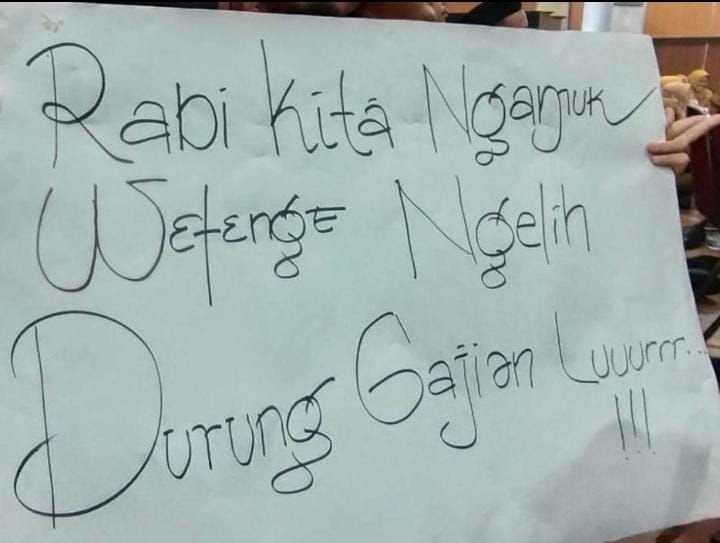 Rabi Kita Ngamuk
Wetenge Ngelih
Durung Gajian Luuurrr...
!!!